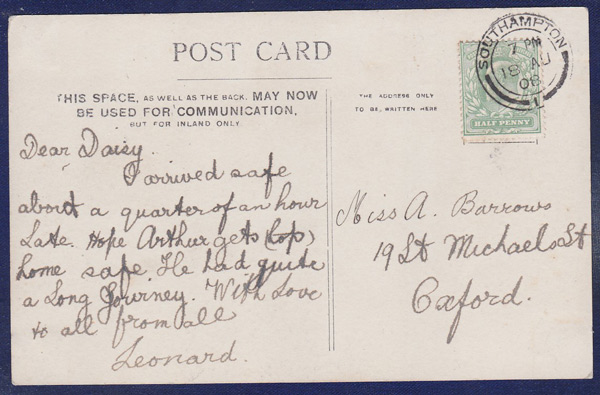 POST CARD
THIS SPACE, AS WELL AS THE BACK, MAY NOW
BE USED FOR COMMUNICATION,
BUT FOR INLAND ONLY.
THE ADDRESS ONLY
TO BE WRITTEN HERE
SOUTHAMPTON
7 PM
18 AU
08
1
HALF PENNY
Dear Daisy.
I arrived safe
about a quarter of an hour
Late. Hope Arthur gets
home safe. He had quite
a Long Journey. With Love
to all from all
Leonard.
Miss A. Barrows
19 St Michaels St
Oxford.